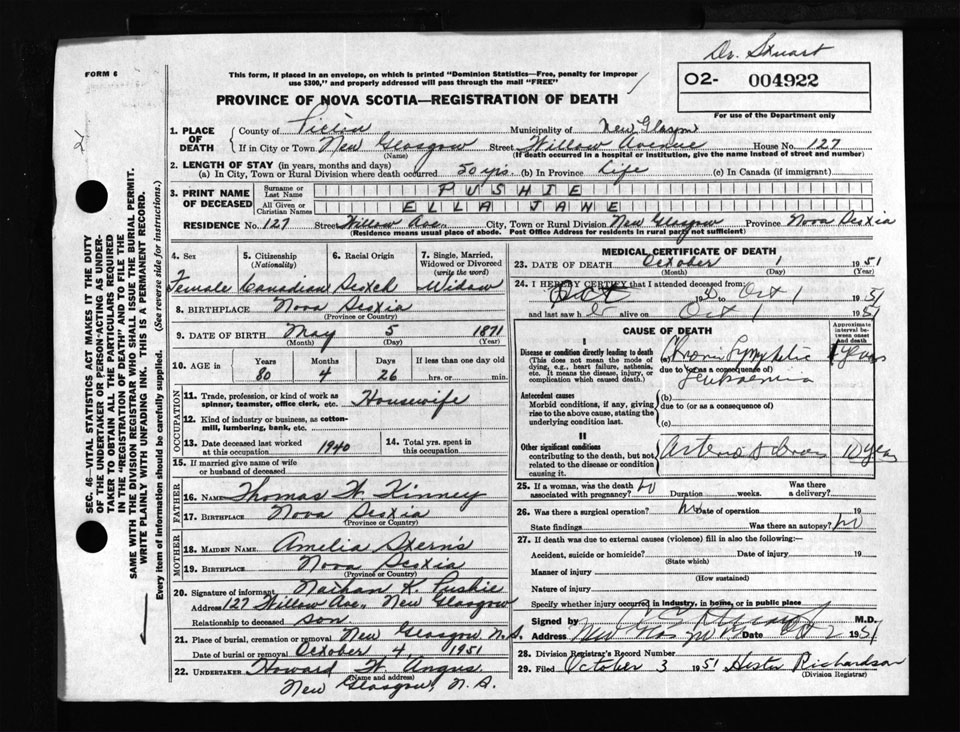 Dr. Stuart
FORM 6
This form, if placed in an envelope, on which is printed "Dominion Statistics—Free, penalty for improper
use $300," and properly addressed will pass through the mail "FREE"
02- 004922
For use of the Department only
PROVINCE OF NOVA SCOTIA—REGISTRATION OF DEATH
SEC. 46—VITAL STATISTICS ACT MAKES IT THE DUTY
OF THE UNDERTAKER OR PERSON ACTING AS UNDER-
TAKER TO OBTAIN ALL THE PARTICULARS REQUIRED
IN THE "REGISTRATION OF DEATH" AND TO FILE THE
SAME WITH THE DIVISION REGISTRAR WHO SHALL ISSUE THE BURIAL PERMIT.
WRITE PLAINLY WITH UNFADING INK. THIS IS A PERMANENT RECORD.
Every item of information should be carefully supplied. (See reverse side for instructions.)
1. PLACE OF DEATH County of Pictou Municipality of New Glasgow
If in City or Town New Glasgow Street Willow Avenue House No. 127
(Name) (If death occurred in a hospital or institution, give the name instead of street and number)
2. LENGTH OF STAY (in years, months and days)
(a) In City, Town or Rural Division where death occurred 50 yrs. (b) In Province Life (c) In Canada (if immigrant)
3. PRINT NAME OF DECEASED Surname or Last Name PUSHIE
All Given or Christian Names ELLA JANE
RESIDENCE No. 127 Street Willow Ave. City, Town or Rural Division New Glasgow Province Nova Scotia
(Residence means usual place of abode. Post Office Address for residents in rural parts not sufficient)
4. Sex 5. Citizenship (Nationality) 6. Racial Origin 7. Single, Married, Widowed or Divorced (write the word)
Female Canadian Scotch Widow
8. BIRTHPLACE Nova Scotia
(Province or Country)
9. DATE OF BIRTH May 5 1871
(Month) (Day) (Year)
10. AGE in Years Months Days If less than one day old
80 4 26 hrs. or min.
OCCUPATION
11. Trade, profession, or kind of work as spinner, teamster, office clerk, etc. Housewife
12. Kind of industry or business, as cotton-mill, lumbering, bank, etc.
13. Date deceased last worked at this occupation 1940 14. Total yrs. spent in this occupation
15. If married give name of wife or husband of deceased
FATHER
16. Name Thomas W. Kinney
17. Birthplace Nova Scotia
(Province or Country)
MOTHER
18. Maiden Name Amelia Sterns
19. Birthplace Nova Scotia
(Province or Country)
20. Signature of informant Nathan K. Pushie
Address 127 Willow Ave., New Glasgow
Relationship to deceased son.
21. Place of burial, cremation or removal New Glasgow, N.S.
Date of burial or removal October 4, 1951
22. Undertaker Howard W. Angus
(Name and address)
New Glasgow, N.S.
MEDICAL CERTIFICATE OF DEATH
23. DATE OF DEATH October 1 1951
(Month) (Day) (Year)
24. I HEREBY CERTIFY that I attended deceased from:
Oct to Oct 1 1951
and last saw h alive on Oct 1 1951
CAUSE OF DEATH
Approximate interval between onset and death
I
Disease or condition directly leading to death
(This does not mean the mode of dying, e.g., heart failure, asthenia, etc. It means the disease, injury, or complication which caused death.)
(a) Chronic Lymphatic
due to (or as a consequence of)
Leukaemia
Antecedent causes
Morbid conditions, if any, giving rise to the above cause, stating the underlying condition last.
(b)
due to (or as a consequence of)
(c)
II
Other significant conditions
contributing to the death, but not related to the disease or condition causing it.
10 years
25. If a woman, was the death associated with pregnancy? No Duration weeks. Was there a delivery?
26. Was there a surgical operation? No Date of operation 19
State findings Was there an autopsy? No
27. If death was due to external causes (violence) fill in also the following:—
Accident, suicide or homicide? Date of injury 19
(State which)
Manner of injury
(How sustained)
Nature of injury
Specify whether injury occurred in industry, in home, or in public place
Signed by M.D.
Address Date Oct 2 1951
28. Division Registrar's Record Number
29. Filed October 3 1951 Hester Richardson
(Division Registrar)